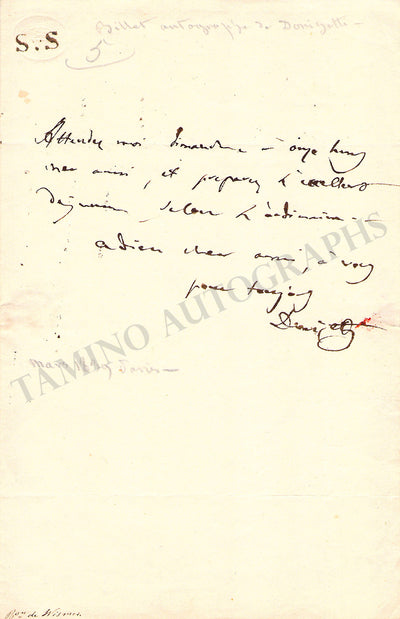 S.S
Billet autographe de Donizetti –
Attendez moi dimanche – onze heures
mon ami, et preparez l'excellent
dejeuner selon l'ordinaire –
adieu mon ami, à vous
pour toujours
Donizetti
Paris –
TAMINO AUTOGRAPHS
Bon de